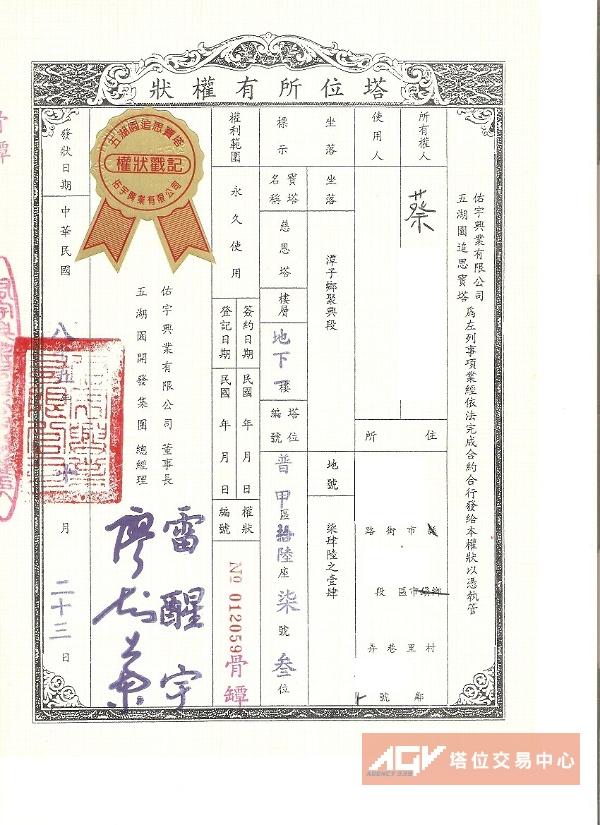 塔位所有權狀
佑宇興業有限公司
五湖園追思寶塔
為左列事項業經依法完成合約合行發給本權狀以憑執管
所有權人
蔡
使用人
住所
縣市
鄉鎮市區
村里
鄰
街路
段
巷
弄
號
坐落標示
坐落
潭子鄉聚興段
地號
柒肆陸之壹肆
寶塔名稱
慈恩塔
樓層
地下
樓
塔位編號
普甲區拾陸座柒號叁位
權利範圍
永久使用
簽約日期
民國 年 月 日
登記日期
民國 年 月 日
權狀編號
No 012059
骨罈
佑宇興業有限公司 董事長
雷醒宇
五湖園開發集團 總經理
五湖園追思寶塔
權狀戳記
佑宇興業有限公司
發狀日期
中華民國
八
年
十
月
二十三
日
骨罈
AGV
AGENCY 339
塔位交易中心